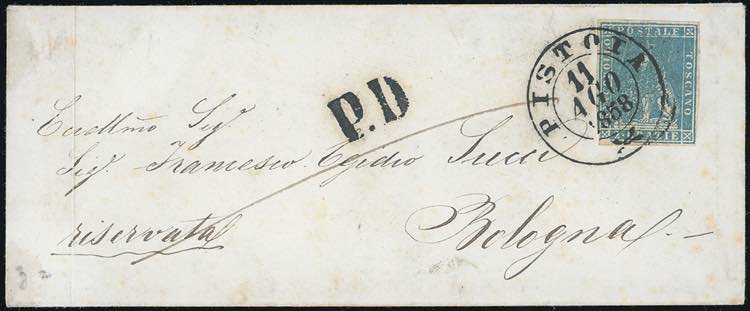 PISTOIA
11
AGO
1858
POSTALE
TOSCANO
P.D
Eccellmo Sig.
Sig. Francesco Egidio Succi
riservata
Bologna